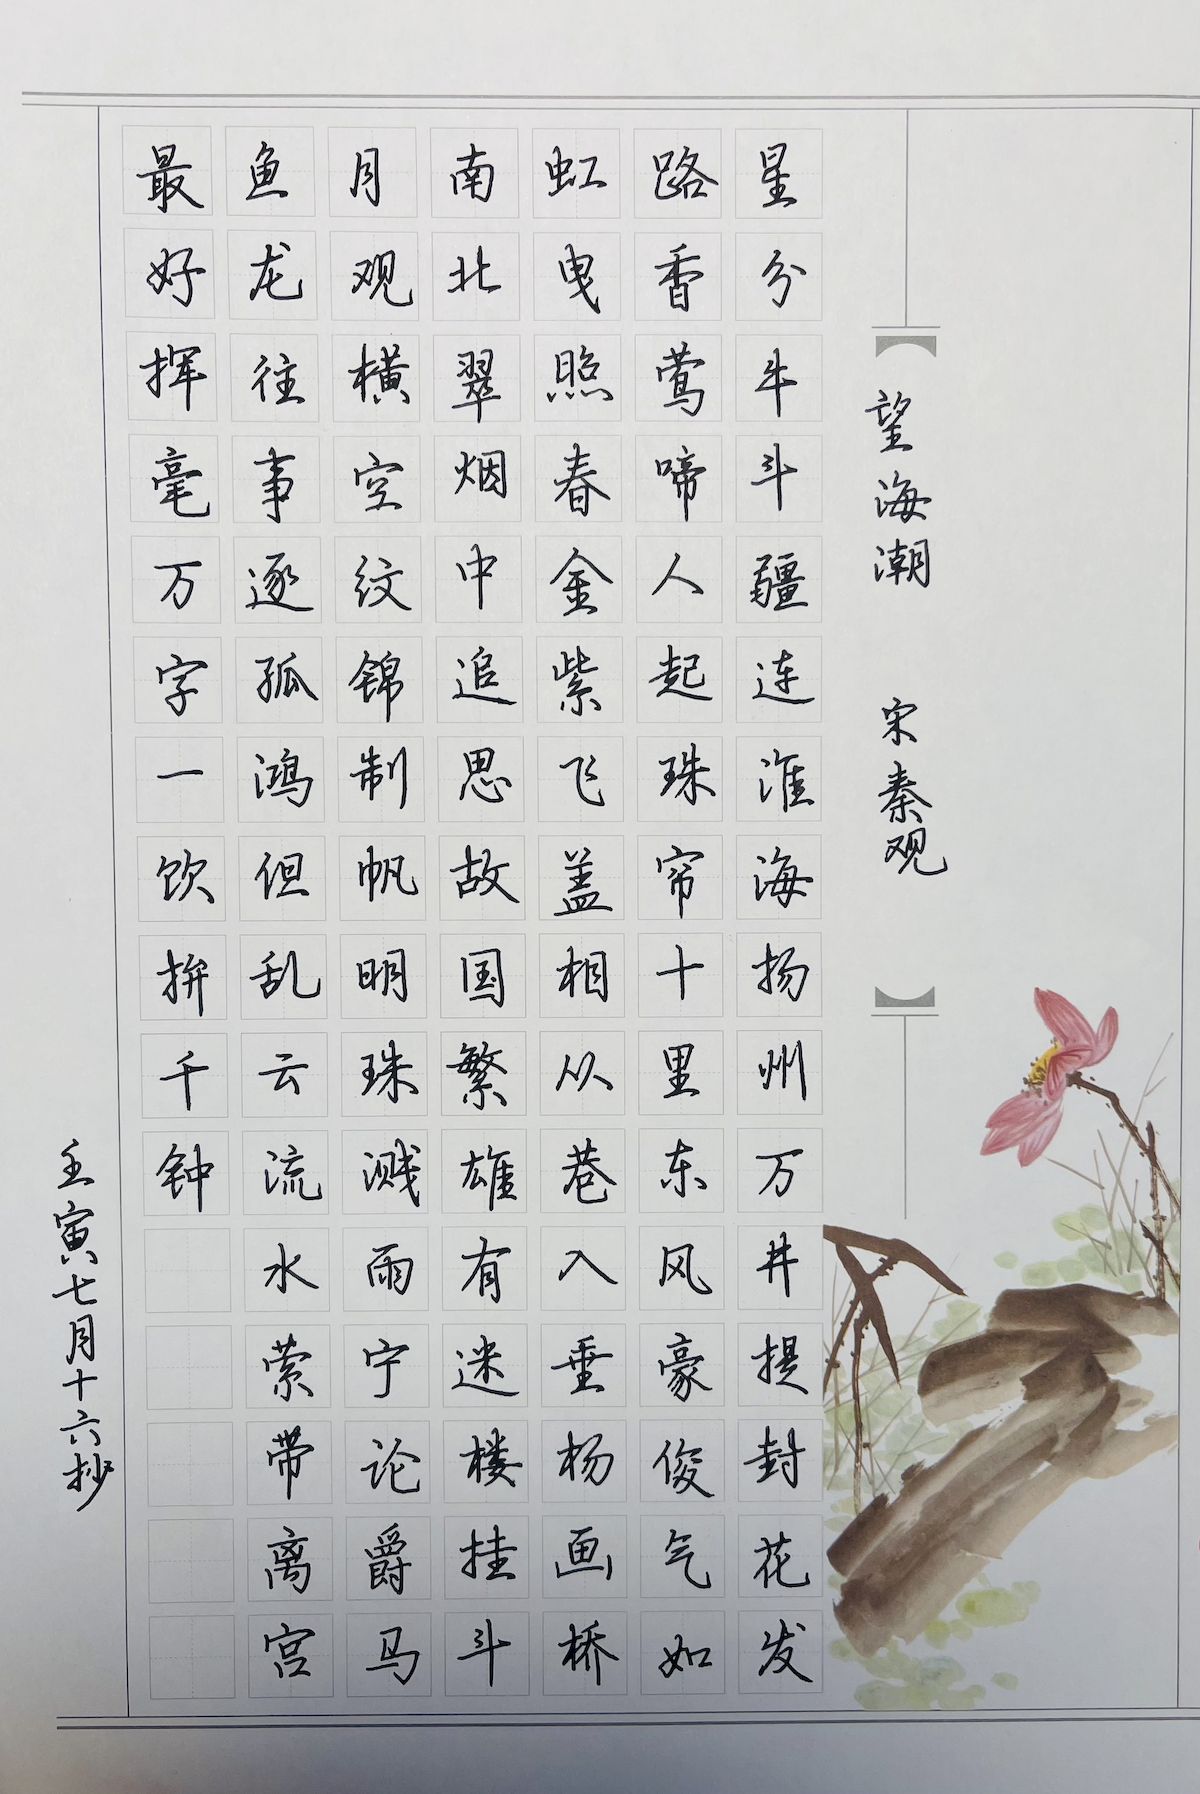 望海潮 宋秦观
星分牛斗疆连淮海扬州万井提封花发
路香莺啼人起珠帘十里东风豪俊气如
虹曳照春金紫飞盖相从巷入垂杨画桥
南北翠烟中追思故国繁雄有迷楼挂斗
月观横空纹锦制帆明珠溅雨宁论爵马
鱼龙往事逐孤鸿但乱云流水萦带离宫
最好挥毫万字一饮拚千钟
壬寅七月十六抄